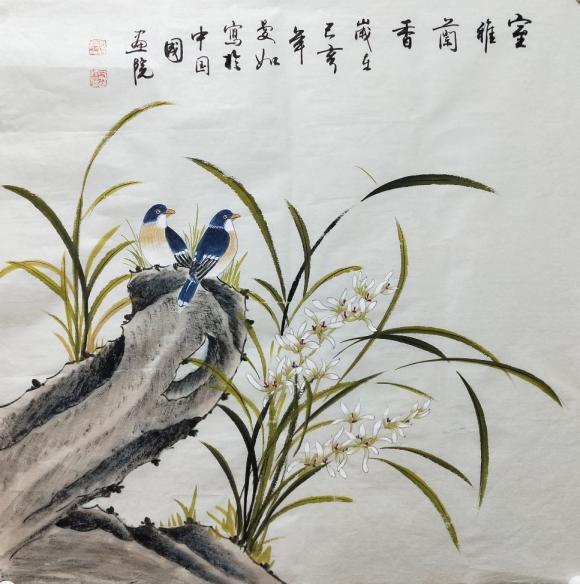 室
雅
蘭
香
歲在
己亥
年
如
寫於
中国
國
畫院